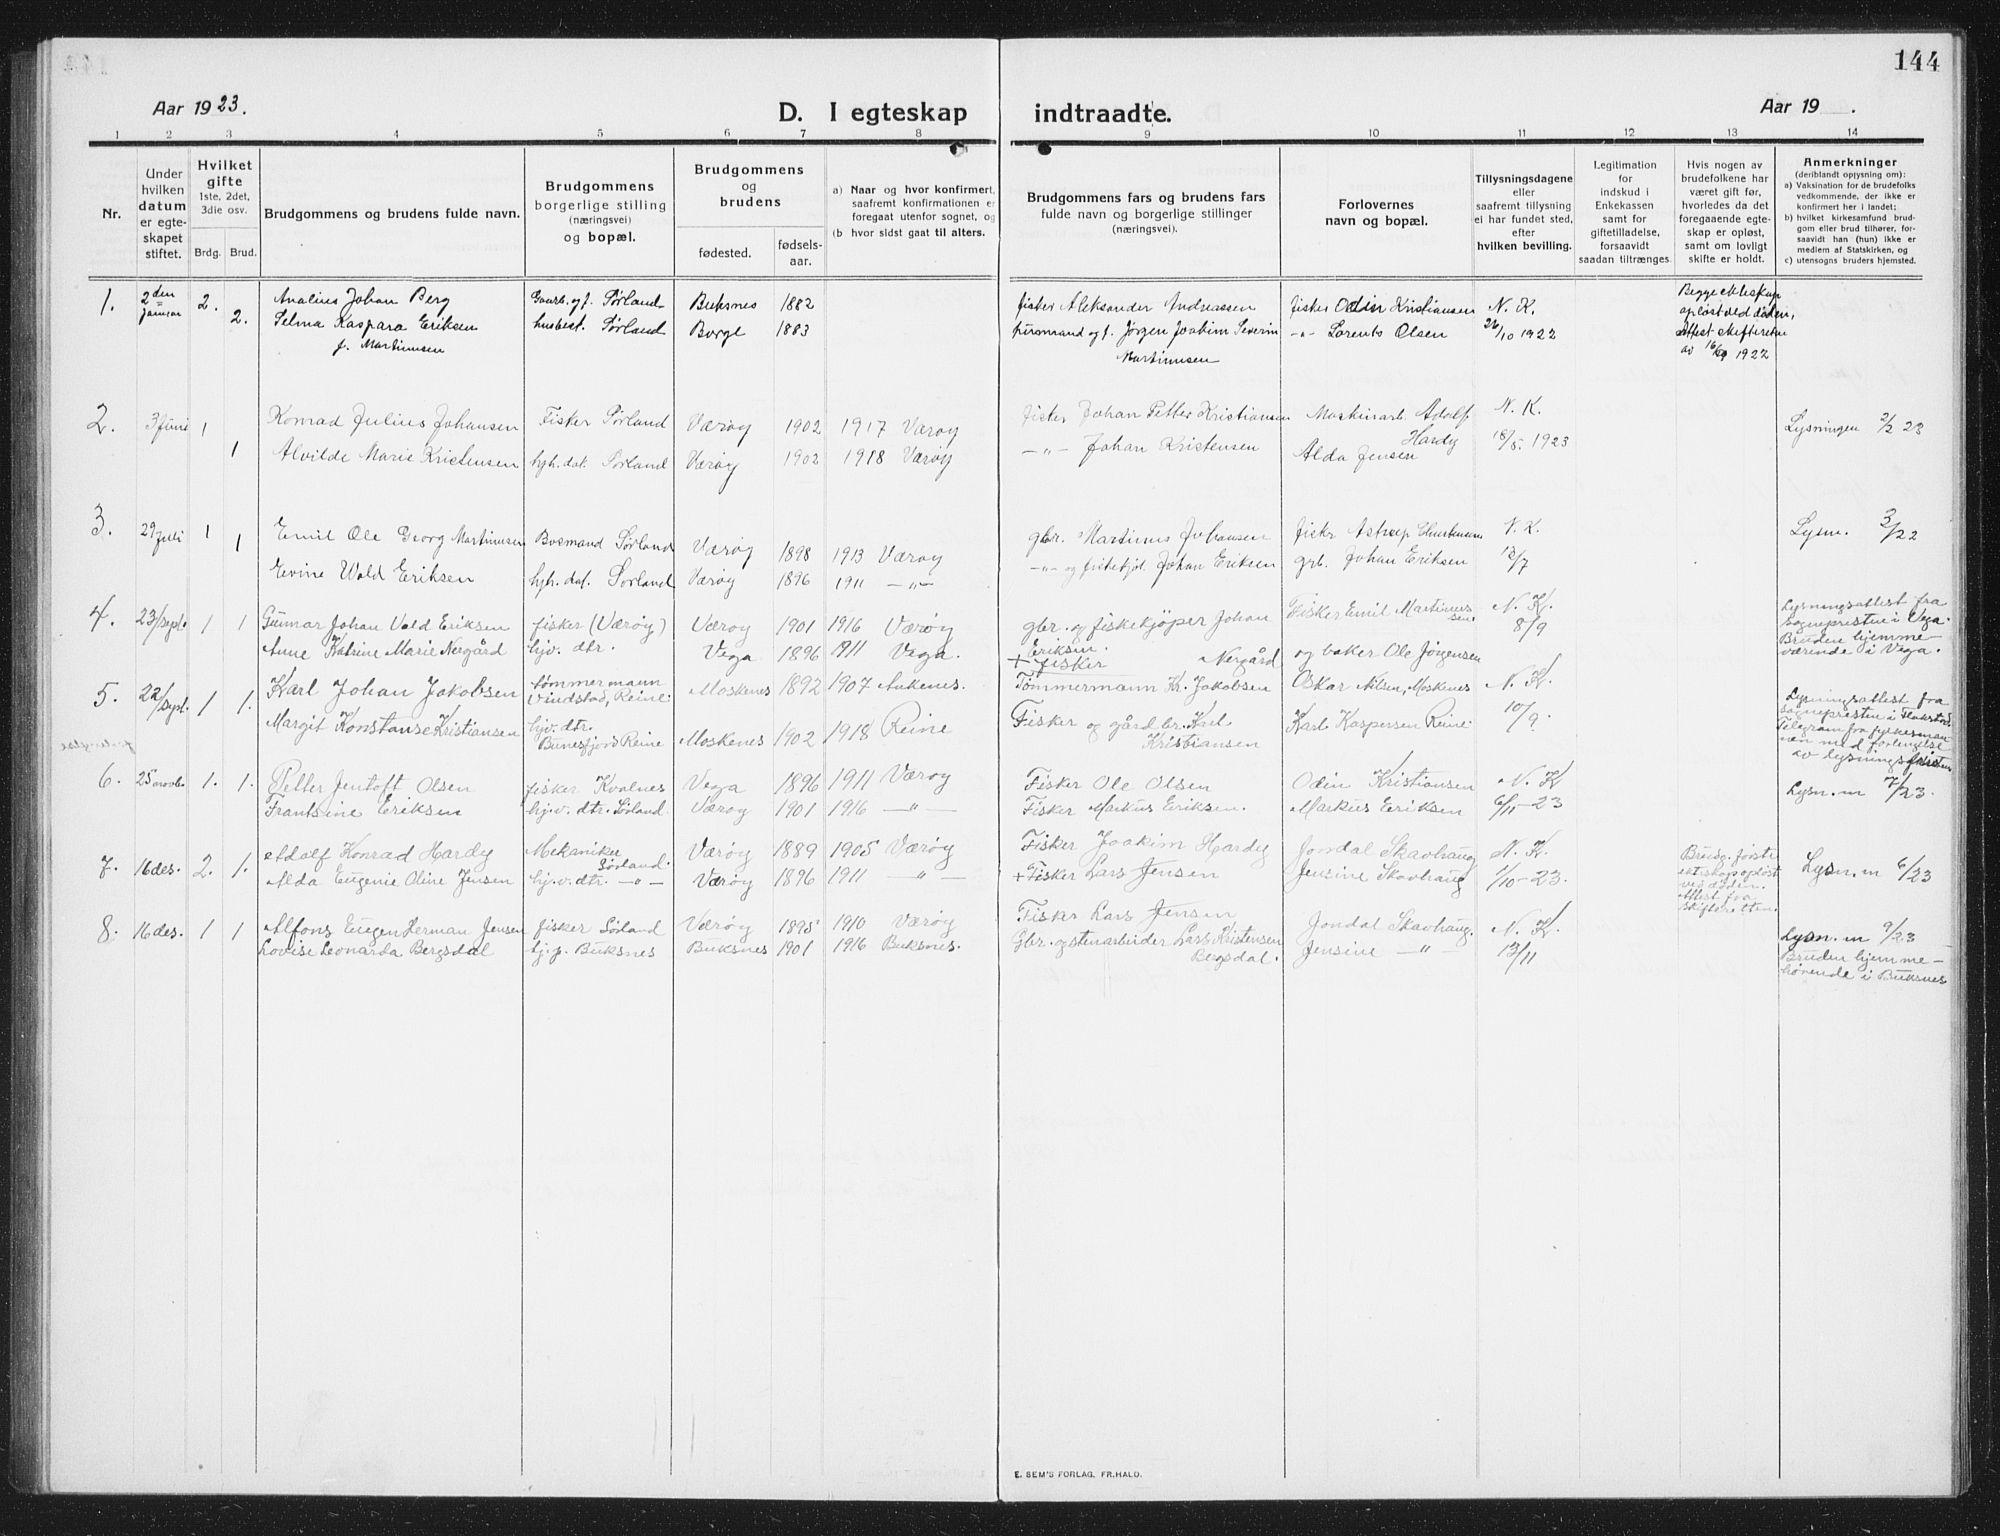 144
Aar 1923.
D. I egteskap indtraadte.
Aar 19 .
1 2 3 4 5 6 7 8 9 10 11 12 13 14
Nr.
Under hvilken datum er egteskapet stiftet.
Hvilket gifte 1ste, 2det, 3die osv.
Brdg. Brud.
Brudgommens og brudens fulde navn.
Brudgommens borgerlige stilling (næringsvei) og bopæl.
Brudgommens og brudens
fødested. fødselsaar.
a) Naar og hvor konfirmert, saafremt konfirmationen er foregaat utenfor sognet, og
(b hvor sidst gaat til alters.
Brudgommens fars og brudens fars fulde navn og borgerlige stillinger (næringsvei).
Forlovernes navn og bopæl.
Tillysningsdagene eller saafremt tillysning ei har fundet sted, efter hvilken bevilling.
Legitimation for indskud i Enkekassen samt for giftetilladelse, forsaavidt saadan tiltrænges
Hvis nogen av brudefolkene har været gift før, hvorledes da det foregaaende egteskap er opløst, samt om lovligt skifte er holdt.
Anmerkninger
(deriblandt opjysning om):
a) Vaksination for de brudefolks vedkommende, der ikke er konfirmert her i landet;
b) hvilket kirkesamfund brudgom eller brud tilhører, forsaavidt han (hun) ikke er medlem af Statskirken, og
c) utensogns bruders hjemsted.
1. 2den januar 2. Analius Johan Berg Gaarb. og f. Sørland Buksnes 1882 fisker Aleksander Andreassen fisker Odin Kristiansen N. K.
2. Selma Kaspara Eriksen husbest. Sørland Borge 1883 huromand og f. Jørgen Joakim Severin -"- Lorents Olsen 26/10 1922
f. Martinusen Martinusen
Begge ekteskap opløst ved døden, attest skifteretten av 16/9 1922
2. 3 Juni 1 Konrad Julius Johansen Fisker Sørland Værøy 1902 1917 Værøy fisker Johan Petter Kristiansen Maskinarb. Adolf Hardy N. K.
1 Alvilde Marie Kristensen hjh. dat. Sørland Værøy 1902 1918 Værøy -"- Johan Kristensen Alda Jensen 18/5. 1923 Lysningen 2/2 23
3. 29 Juli 1 Emil Ole Georg Martinusen Bosmand Sørland Værøy 1898 1913 Værøy gbr. Martinus Johansen fiskr N. K. Lysn. 3/22
1 Evine Wold Eriksen hjh. dat. Sørland Værøy 1896 1911 -"- -"- og fiskekjøl. Johan Eriksen grb. Johan Eriksen 12/7
4. 23/sept. 1 1 Gunnar Johan Vold Eriksen fisker (Værøy) Værøy 1901 1916 Værøy gbr. og fiskekjøper Johan Eriksen Fisker Emil Martinussen N. K.
Anne Katrine Marie Nergård hjv. dtr. Vega 1896 1911 Vega. + fisker Nergård og baker Ole Jørgensen 8/9
Lysningsattest fra sognepresten i Vega. Bruden hjemmeværende i Vega.
5. 22/sept. 1 1. Karl Johan Jakobsen tømmermann Vindstad, Reine Moskenes 1892 1907 Ankenes. Tømmermann Kr. Jakobsen Oskar Nilsen, Moskenes N. K.
Margit Konstanse Kristiansen hjv. dtr. Bunesfjord Reine Moskenes 1902 1918 Reine Fisker og gårdbr. Karl Kristiansen Karl Kaspersen Reine 10/9.
Lysningsattest fra sognepresten i Flakstad. Telegram fra fylkesmannen med forlengelse av lysningsfristen
forlengelse
6. 25 novbr. 1. 1. Petter Jentoft Olsen fisker Kvalnes Vega 1896 1911 Værøy Fisker Ole Olsen Odin Kristiansen N. K Lysn. m 7/23.
Frantsine Eriksen hj.v. dtr. Sörland Værøy 1901 1916 -"- Fisker Markus Eriksen. Markus Eriksen 6/11-23
7. 16 des. 2. 1. Adolf Konrad Hardy Mekaniker Sørland. Værøy 1889 1905 Værøy Fisker Joakim Hardy Jondal Skavhaug N. K.
Alda Eugenie Oline Jensen hj.v. dtr. -"- Værøy 1896 1911 -"- + Fisker Lars Jensen Jensine Skavhaug 1/10-23.
Brudg. første ekteskap opløst ved døden. Attest fra skifteretten. Lysn. m 6/23
8. 16 des. 1 1 Alfons Eugen Herman Jensen fisker Sørland Værøy 1895 1910 Værøy Fisker Lars Jensen Jondal Skavhaug. N. K.
Lovise Leonarda Bergsdal hj. p. Buksnes Buksnes 1901 1916 Buksnes. Gbr. og stenarbeider Lars Kristensen Bergsdal. Jensine -"- 13/11
Lysn. m 9/23 Bruden hjemmehørende i Buksnes
E. SEM'S FORLAG, FR.HALD.